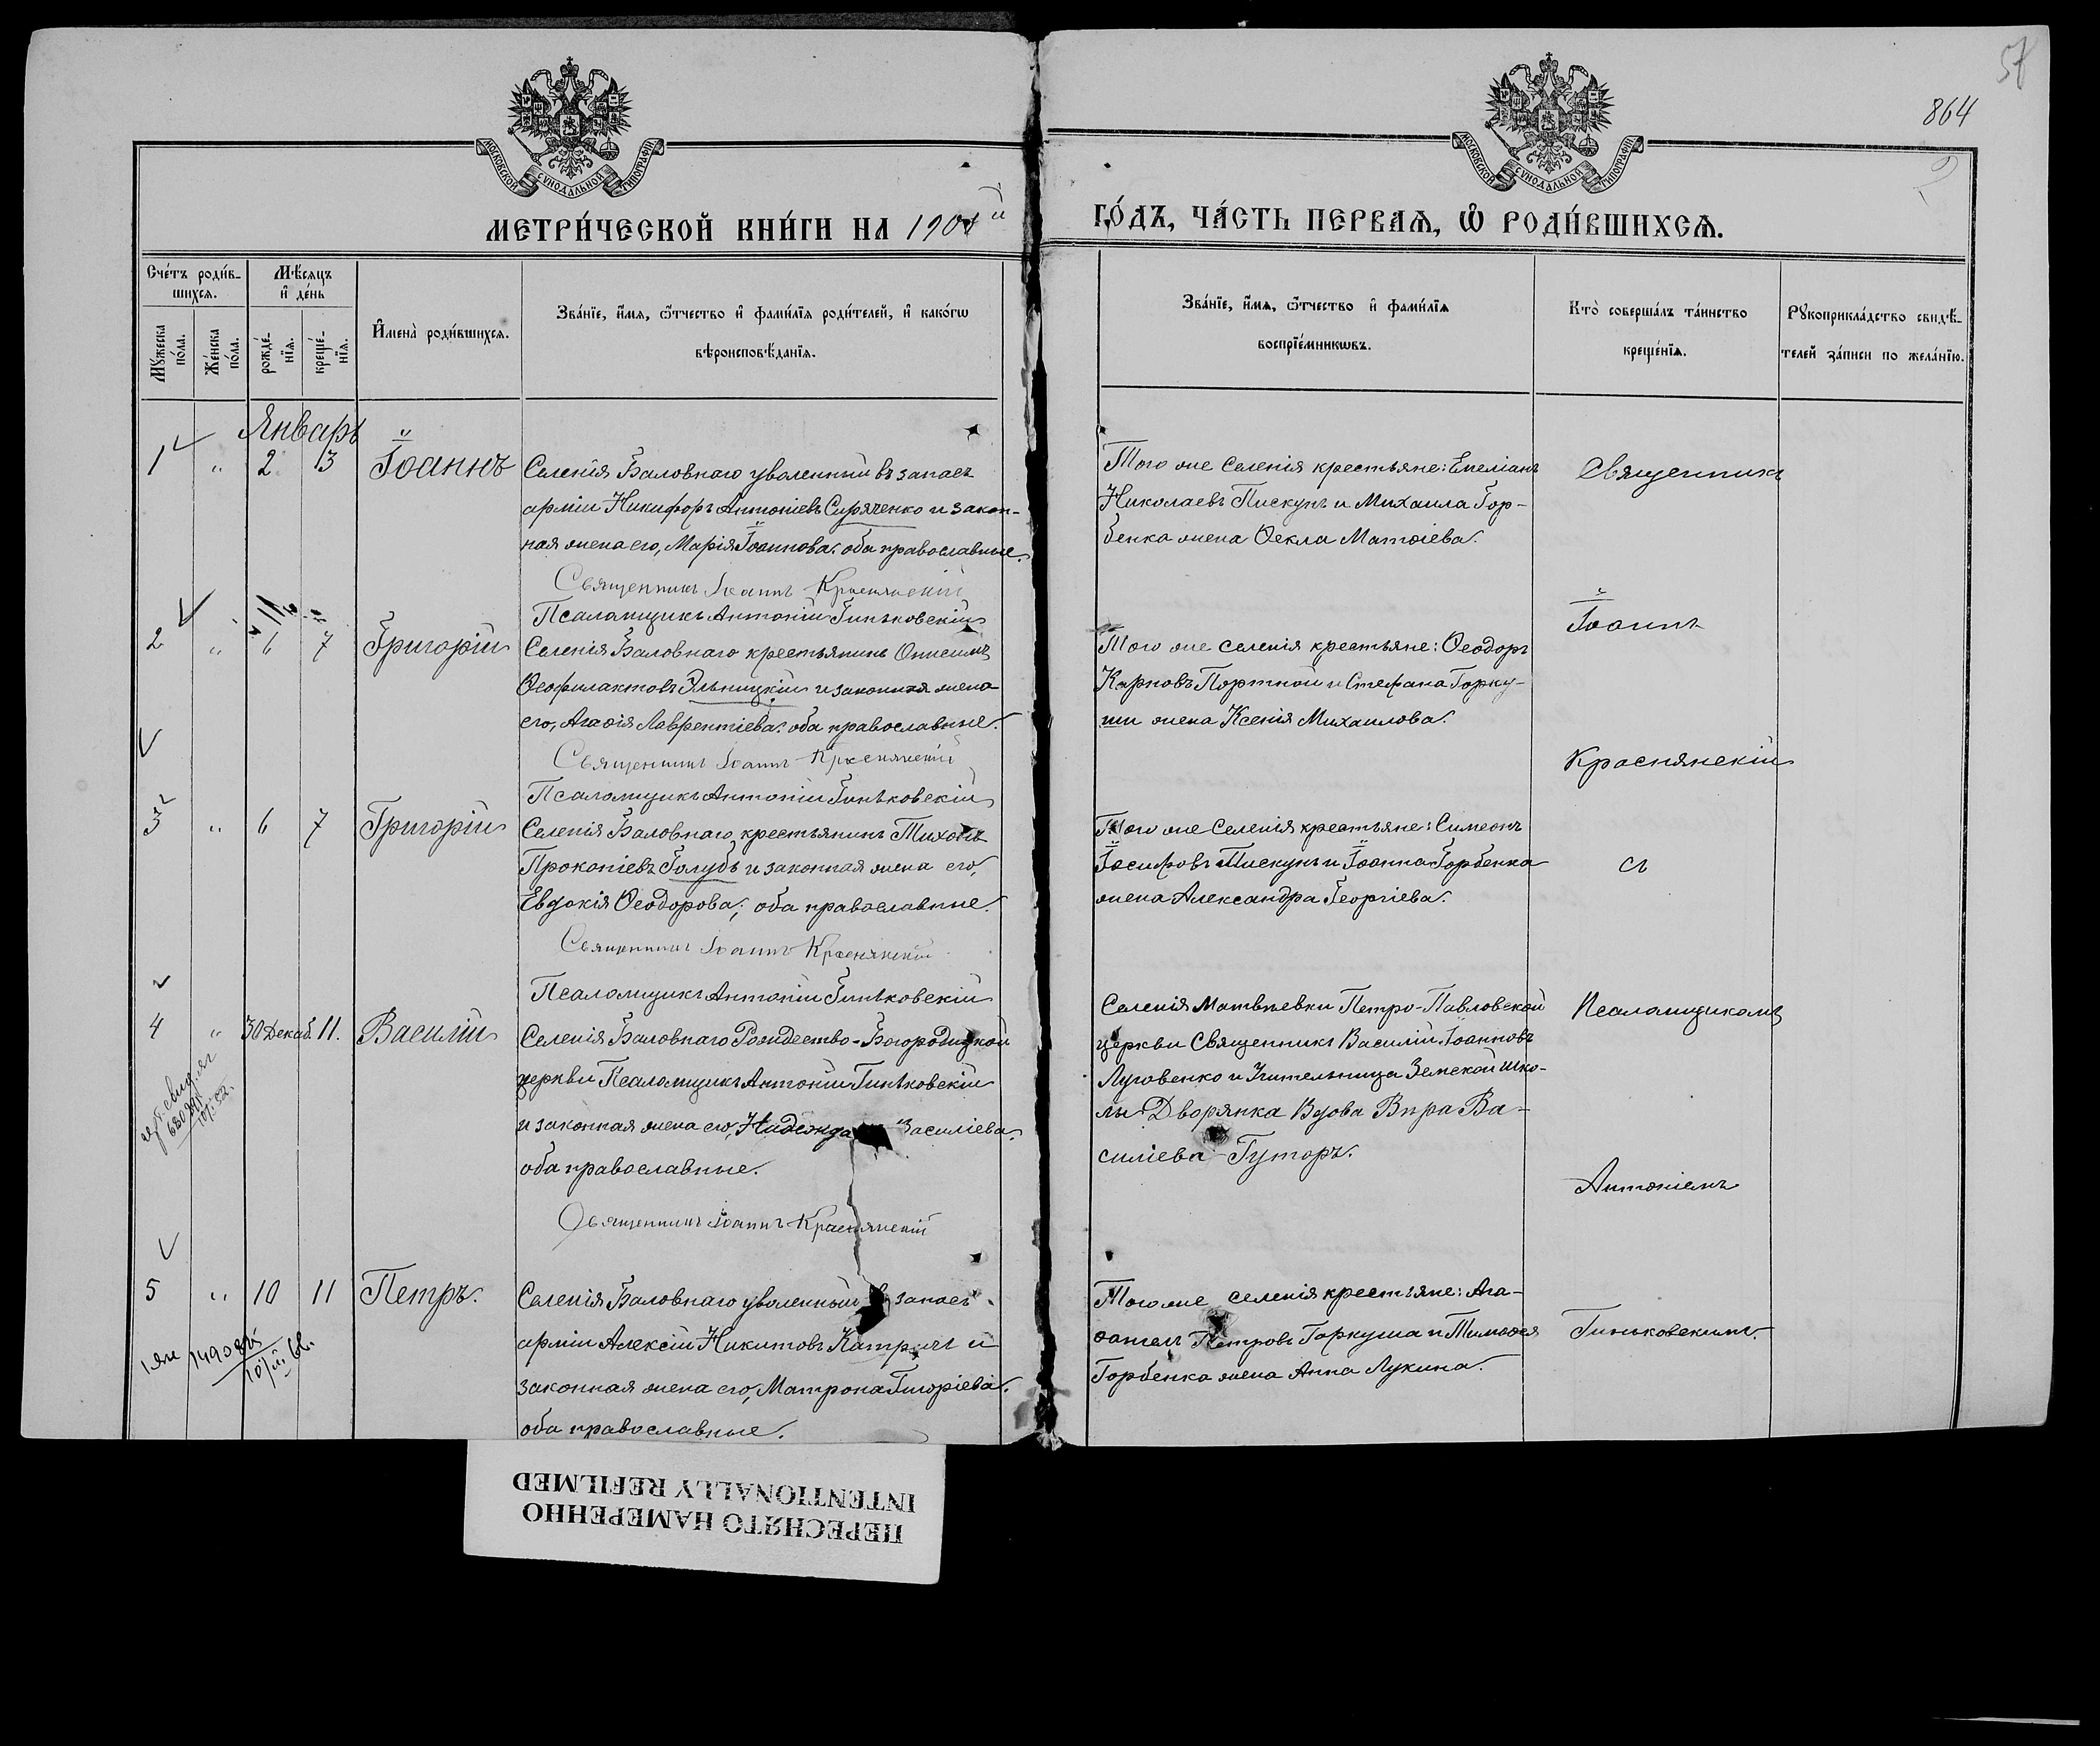 57
864
2
МОСКОВСКОЙ СѴНОДАЛЬНОЙ ТИПОГРАФІИ
МОСКОВСКОЙ СѴНОДАЛЬНОЙ ТИПОГРАФІИ
МЕТРИ́ЧЕСКОЙ КНИ́ГИ НА 1901й
ГО́ДЪ, ЧА́СТЬ ПЕРВАѦ, Ѡ҆ РОДИ́ВШИХСѦ.
Сче́тъ роди́в-
шихсѧ.
Мѣ́сяцъ
и҆ де́нь
Мꙋ́жеска
по́ла.
Же́нска
по́ла.
рожде́-
нїѧ.
креще́-
нїѧ.
И҆мена̀ роди́вшихсѧ.
Зва́нїе, и҆́мѧ, ѻ҆́тчество и҆ фами́лїѧ роди́телей, и҆ како́гѡ
вѣроисповѣ́данїѧ.
Зва́нїе, и҆́мѧ, ѻ҆́тчество и҆ фами́лїѧ
воспрїе́мникѡвъ.
Кто̀ соверша́лъ та́инство
креще́нїѧ.
Рꙋкоприкла́дство свидѣ́-
телей за́писи по жела́нїю.
Январь
1 " 2 3 Іоаннъ
Селенія Баловнаго уволенный въ запасъ
арміи Никифоръ Антоніевъ Сиряченко и закон-
ная жена его, Марія Іоаннова: оба православные.
Священникъ Іоаннъ Краснянскій
Псаломщикъ Антоній Гиньковскій
Того же селенія крестьяне: Емеліанъ
Николаевъ Пискунъ и Михаила Гор-
бенка жена Ѳекла Матѳіева.
Священникъ
2 " 6 7 Григорій
Селенія Баловнаго крестьянинъ Онисимъ
Ѳеофилактовъ Яльницкій и законная жена
его, Агаѳія Лаврентіева: оба православные.
Священникъ Іоаннъ Краснянскій
Псаломщикъ Антоній Гиньковскій
Того же селенія крестьяне: Ѳеодоръ
Карповъ Портной и Стефана Горку-
ши жена Ксенія Михаилова.
Іоаннъ
Краснянскій
3 " 6 7 Григорій
Селенія Баловнаго крестьянинъ Тихонъ
Прокопіевъ Голубъ и законная жена его,
Евдокія Ѳеодорова; оба православные.
Священникъ Іоаннъ Краснянскій
Псаломщикъ Антоній Гиньковскій
Того же селенія крестьяне: Симеонъ
Іосифовъ Пискунъ и Іоанна Горбенка
жена Александра Георгіева.
съ
4 " 30 Декаб. 11. Василій
Селенія Баловнаго Рождество-Богородицкой
церкви Псаломщикъ Антоній Гиньковскій
и законная жена его, Надежда Василіева.
оба православные.
Священникъ Іоаннъ Краснянскій
Селенія Матвѣевки Петро-Павловской
церкви Священникъ Василій Іоанновъ
Луговенко и Учительница Земской шко-
лы Дворянка Вдова Вѣра Ва-
силіева Гуторъ.
Псаломщикомъ
Антоніемъ
5 " 10 11 Петръ.
Селенія Баловнаго уволенный въ запасъ
арміи Алексій Никитовъ Катричъ и
законная жена его, Матрона Григоріева.
оба православные.
Того же селенія крестьяне: Ага-
ѳангелъ Петровъ Горкуша и Тимоѳея
Горбенка жена Анна Лукина.
Гиньковскимъ.
ПЕРЕСНЯТО НАМЕРЕННО
INTENTIONALLY REFILMED